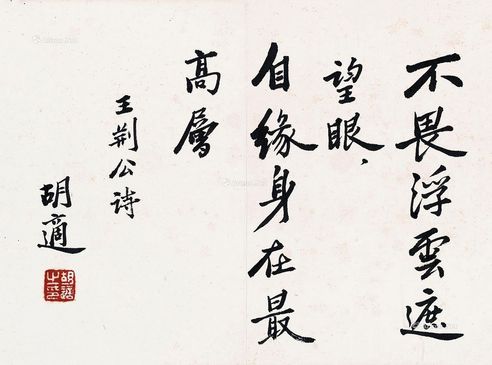 不畏浮雲遮
望眼，
自缘身在最
高層
王荆公诗
胡適
胡適之印